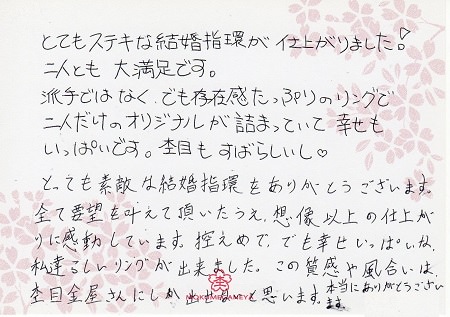 とてもステキな結婚指環が仕上がりました!
二人とも 大満足です。
派手ではなく、でも存在感たっぷりのリングで
二人だけのオリジナルが詰まっていて 幸せも
いっぱいです。杢目もすばらしいし♡
とっても素敵な結婚指環をありがとうございます。
全て要望を叶えて頂いたうえ、想像以上の仕上が
りに感動しています。控えめで、でも幸せいっぱいな、
私達らしいリングが出来ました。この質感や風合いは、
杢目金屋さんにしか出せないと思います。本当にありがとうござい
ます。